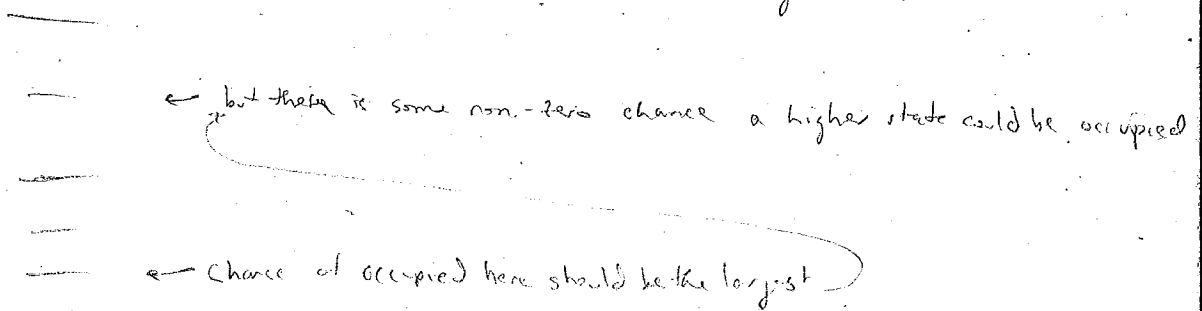 ← but there is some non-zero chance a higher state could be occupied
← Chance of occupied here should be the largest